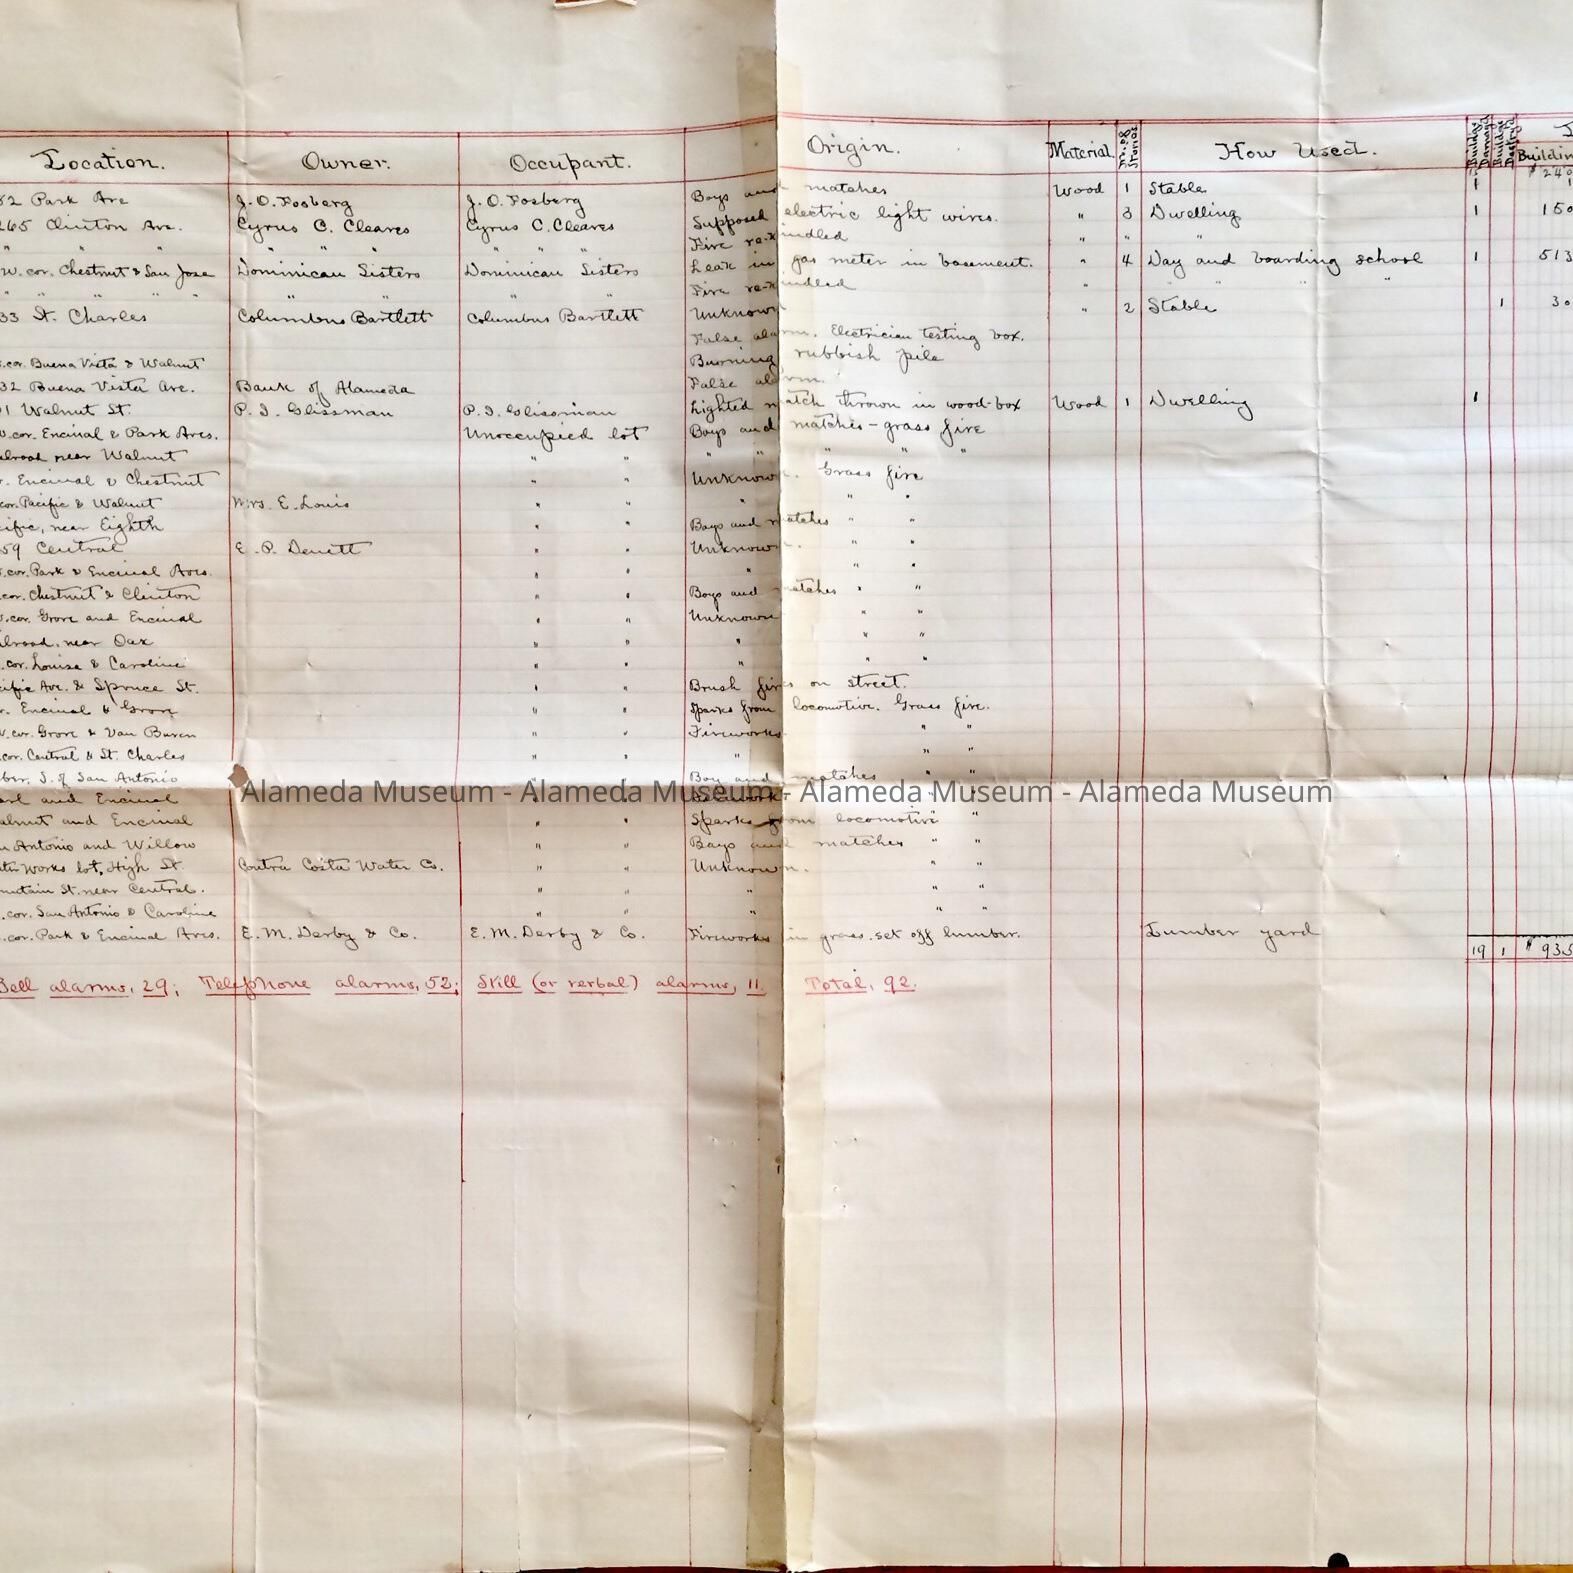 Location. Owner. Occupant. Origin. Material. No. of Stories How Used. Build'gs Damag'd Build'gs Destry'd Buildin
52 Park Ave J. O. Fosberg J. O. Fosberg Boys and matches Wood 1 Stable 1 $ 240
265 Clinton Ave. Cyrus C. Cleaves Cyrus C. Cleaves Supposed electric light wires. " 3 Dwelling 1 150
" " " " " " " " Fire re-kindled " " "
W. cor. Chestnut & San Jose Dominican Sisters Dominican Sisters Leak in gas meter in basement. " 4 Day and boarding school 1 513
" " " " " " Fire re-kindled " " " "
33 St. Charles Columbus Bartlett Columbus Bartlett Unknown " 2 Stable 1 30
False alarm. Electrician testing box.
cor. Buena Vista & Walnut Burning rubbish pile
32 Buena Vista Ave. Bank of Alameda False alarm.
1 Walnut St. P. I. Glissman P. I. Glissman Lighted match thrown in wood-box Wood 1 Dwelling 1
W. cor. Encinal & Park Aves. Unoccupied lot Boys and matches - grass fire
ilroad near Walnut " " " " " "
Encinal & Chestnut " " Unknown. Grass fire
cor. Pacific & Walnut Mrs. E. Louis " " " " "
cific, near Eighth " " Boys and matches " "
59 Central E. P. Denett " " Unknown. " "
cor. Park & Encinal Aves. " " " " "
cor. Chestnut & Clinton " " Boys and matches " "
cor. Grove and Encinal " " Unknown " "
ilroad, near Oak " " " " "
cor. Louisa & Caroline " " " " "
cific Ave. & Spruce St. " " Brush fire on street.
Encinal & Grove " " Sparks from locomotive. Grass fire.
W. cor. Grove & Van Buren " " Fireworks " "
cor. Central & St. Charles " " " " "
ber. S. of San Antonio " " Boy and matches " "
arl and Encinal " " " "
alnut and Encinal " " Sparks from locomotive "
n Antonio and Willow " " Boys and matches " "
ater Works lot, High St. Contra Costa Water Co. " " Unknown.
untain St. near Central. " " " " "
cor. San Antonio & Caroline " " " " "
cor. Park & Encinal Aves. E. M. Derby & Co. E. M. Derby & Co. Fireworks in grass set off lumber. Lumber yard
19 1 $ 935
Bell alarms, 29; Telephone alarms, 52; Still (or verbal) alarms, 11. Total, 92.
Alameda Museum - Alameda Museum - Alameda Museum - Alameda Museum